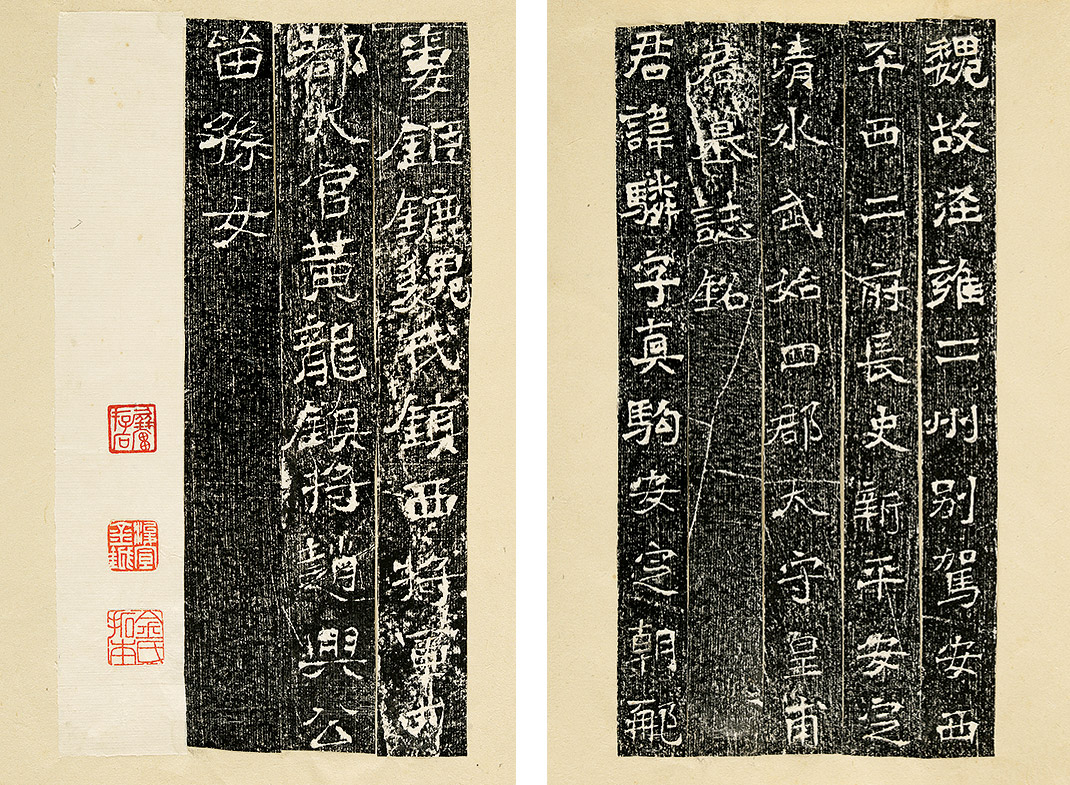 魏故涇雍二州別駕安西
平西二府長史新平安定
清水武始四郡太守皇甫
君墓誌銘
君諱驎字真駒安定朝那
妻鉅鏕魏氏鎮西將軍内
都大官黃龍鎮將趙興公
留孫女
金氏拓本